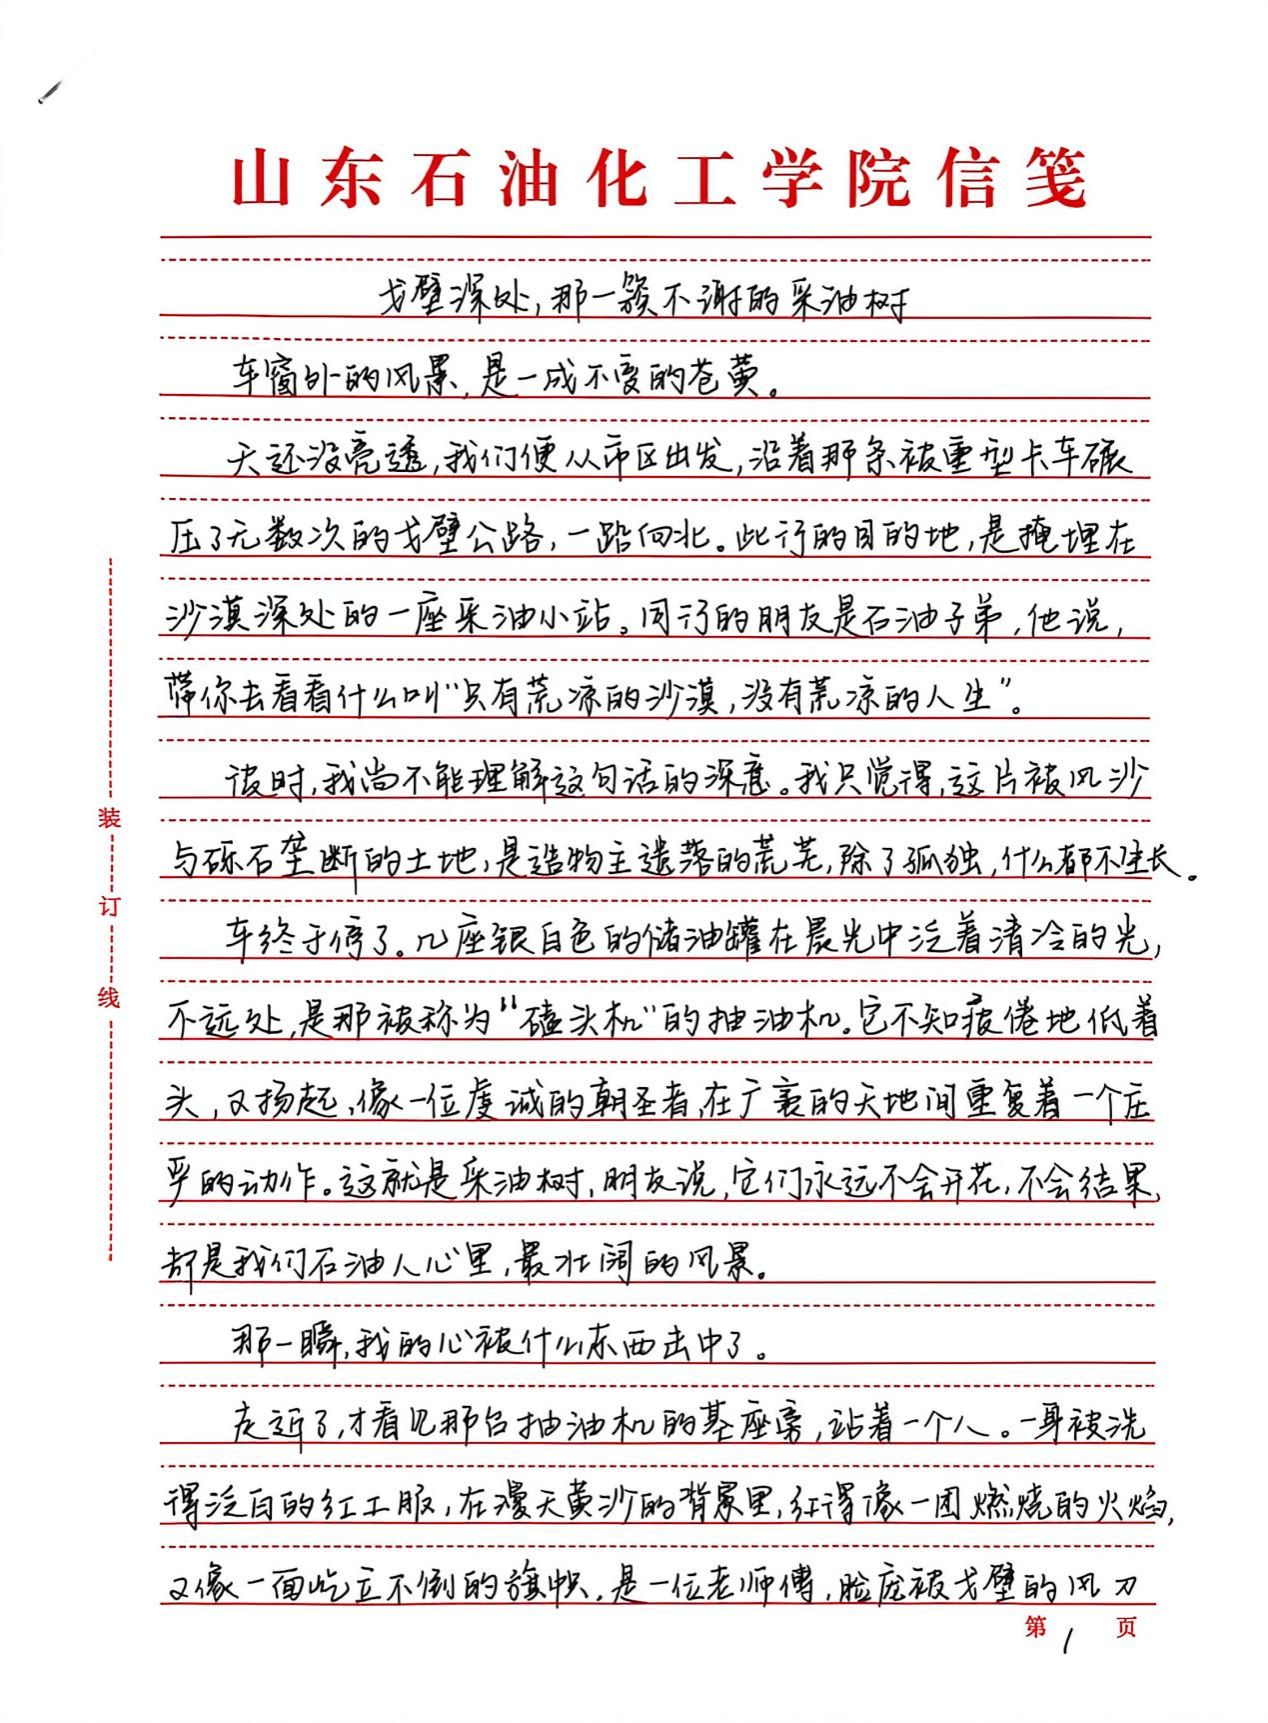 山东石油化工学院信笺
戈壁深处,那一簇不谢的采油树
车窗外的风景,是一成不变的苍黄。
天还没亮透,我们便从市区出发,沿着那条被重型卡车碾
压了无数次的戈壁公路,一路向北。此行的目的地,是掩埋在
沙漠深处的一座采油小站。同行的朋友是石油子弟,他说,
带你去看看什么叫“只有荒凉的沙漠,没有荒凉的人生”。
彼时,我尚不能理解这句话的深意。我只觉得,这片被风沙
与砾石垄断的土地,是造物主遗落的荒芜,除了孤独,什么都不生长。
车终于停了。几座银白色的储油罐在晨光中泛着清冷的光,
不远处,是那被称为“磕头机”的抽油机。它不知疲倦地低着
头,又扬起,像一位虔诚的朝圣者,在广袤的天地间重复着一个庄
严的动作。这就是采油树,朋友说,它们永远不会开花,不会结果,
却是我们石油人心里,最壮阔的风景。
那一瞬,我的心被什么东西击中了。
走近了,才看见那台抽油机的基座旁,站着一个人。一身被洗
得泛白的红工服,在漫天黄沙的背景里,红得像一团燃烧的火焰,
又像一面屹立不倒的旗帜。是一位老师傅,脸庞被戈壁的风刀
第1页
装
订
线